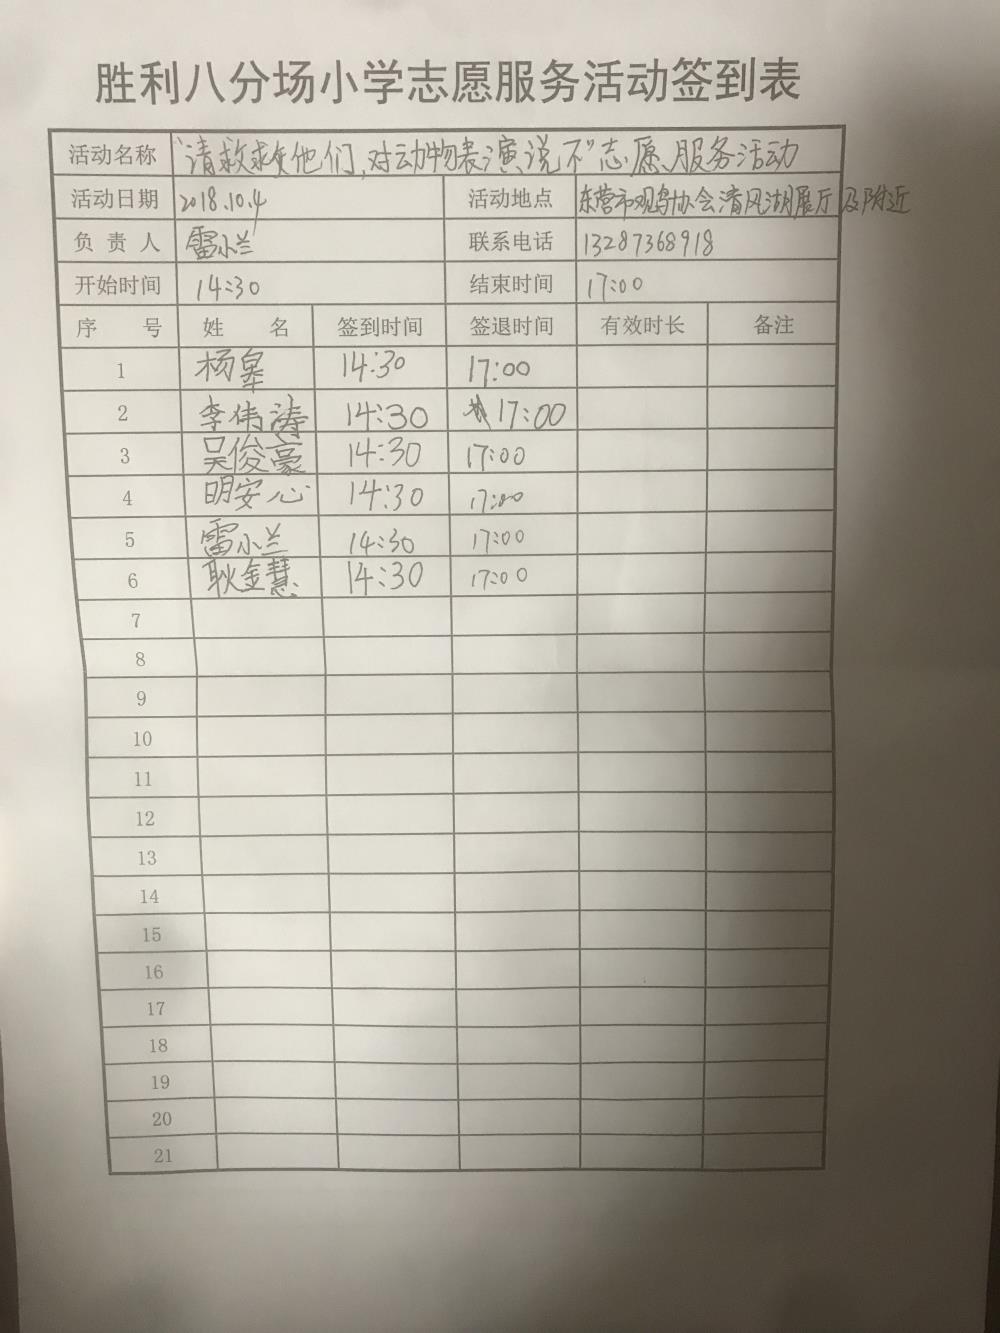 胜利八分场小学志愿服务活动签到表
活动名称 "请救救他们,对动物表演说不"志愿服务活动
活动日期 2018.10.4 活动地点 东营市观鸟协会清风湖展厅及附近
负责人 雷小兰 联系电话 13287368918
开始时间 14:30 结束时间 17:00
序号 姓名 签到时间 签退时间 有效时长 备注
1 杨 14:30 17:00
2 李伟涛 14:30 17:00
3 吴俊豪 14:30 17:00
4 明安心 14:30 17:00
5 雷小兰 14:30 17:00
6 耿金慧 14:30 17:00
7
8
9
10
11
12
13
14
15
16
17
18
19
20
21